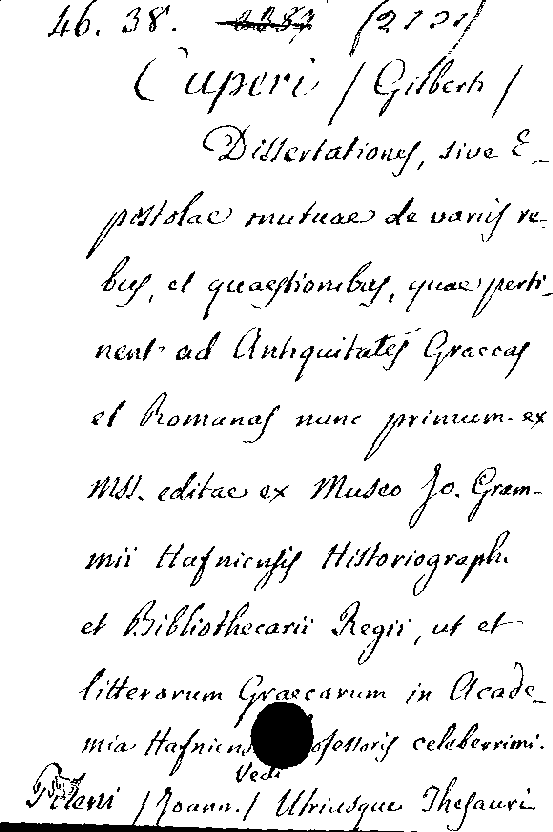 46. 38. (2131)
Cuperi / Gilberti /
Dissertationes, sive E-
pistolae mutuae de variis re-
bus, et quaestionibus, quae perti-
nent ad Antiquitates Graecas
et Romanas nunc primum ex
Mss. editae ex Museo Jo. Gram-
mii Hafniensis Historiographi
et Bibliothecarii Regii, ut et
litterarum Graecarum in Acade-
mia Hafniens ofessoris celeberrimi.
Vedi
Poleni / Joann. / Utriusque Thesauri